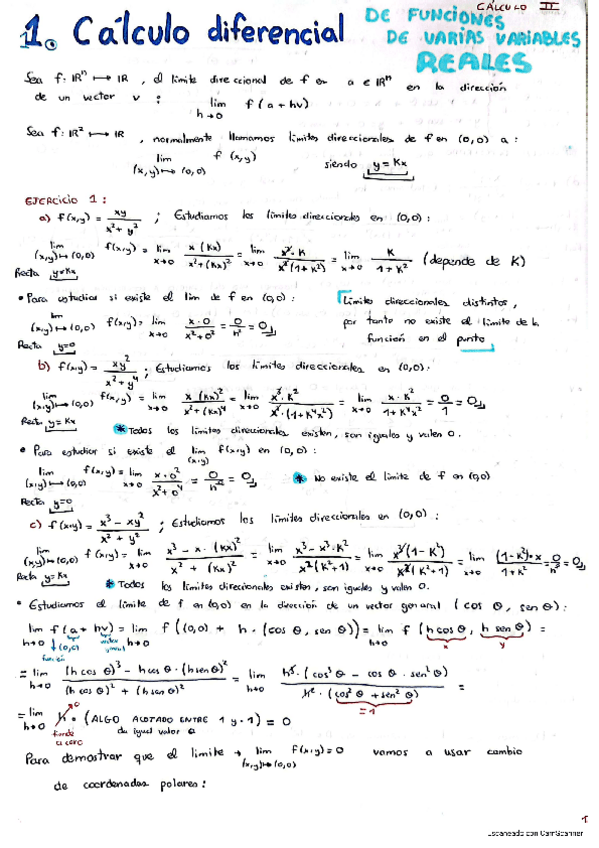 CÁLCULO II
1. Cálculo diferencial DE FUNCIONES
DE VARIAS VARIABLES
REALES
Sea f: IRⁿ ↦ IR , el límite direccional de f en a ∈ IRⁿ en la dirección
de un vector v : lim h→0 f (a + hv)
Sea f: IR² ↦ IR , normalmente llamamos límites direccionales de f en (0,0) a:
lim (x,y)↦(0,0) f (x,y) siendo y = Kx
EJERCICIO 1:
a) f(x,y) = xy / x² + y² ; Estudiamos los límites direccionales en (0,0):
lim (x,y)↦(0,0) f(x,y) = lim x→0 x (Kx) / x² + (Kx)² = lim x→0 x² · K / x² (1 + K²) = lim x→0 K / 1 + K² (depende de K)
Recta y=Kx
• Para estudiar si existe el lim de f en (0,0): Límites direccionales distintos,
lim (x,y)↦(0,0) f(x,y) = lim x→0 x · 0 / x² + 0² = 0 / h² = 0 por tanto no existe el límite de la
Recta y=0 función en el punto
b) f(x,y) = xy² / x² + y⁴ ; Estudiamos los límites direccionales en (0,0):
lim (x,y)↦(0,0) f(x,y) = lim x→0 x (Kx)² / x² + (Kx)⁴ = lim x→0 x³ · K² / x² · (1 + K⁴x²) = lim x→0 x · K² / 1 + K⁴x² = 0 / 1 = 0
Recta y = Kx
* Todos los límites direccionales existen, son iguales y valen 0.
• Para estudiar si existe el lim (x,y) f(x,y) en (0,0):
lim (x,y)↦(0,0) f(x,y) = lim x→0 x · 0² / x² + 0⁴ = 0 / h² = 0 * No existe el límite de f en (0,0)
Recta y=0
c) f(x,y) = x³ − xy² / x² + y² ; Estudiamos los límites direccionales en (0,0):
lim (x,y)↦(0,0) f(x,y) = lim x→0 x³ − x · (Kx)² / x² + (Kx)² = lim x→0 x³ − x³ · K² / x² (K² + 1) = lim x→0 x³ (1 − K²) / x² (K² + 1) = lim x→0 (1 − K²) · x / 1 + K² = 0 / h² = 0
Recta y = Kx
* Todos los límites direccionales existen, son iguales y valen 0.
• Estudiamos el límite de f en (0,0) en la dirección de un vector general (cos θ, sen θ):
lim h→0 f (a + hv) = lim h→0 f ((0,0) + h · (cos θ, sen θ)) = lim h→0 f (h cos θ, h sen θ) =
función (0,0) vector x y
= lim h→0 (h cos θ)³ − h cos θ · (h sen θ)² / (h cos θ)² + (h sen θ)² = lim h→0 h³ · (cos³ θ − cos θ · sen² θ) / h² · (cos² θ + sen² θ) =
= 1
= lim h→0 h · (ALGO ACOTADO ENTRE 1 y -1) = 0
tiende a cero da igual valor θ
Para demostrar que el límite → lim (x,y)↦(0,0) f(x,y) = 0 vamos a usar cambio
de coordenadas polares:
1
Escaneado con CamScanner